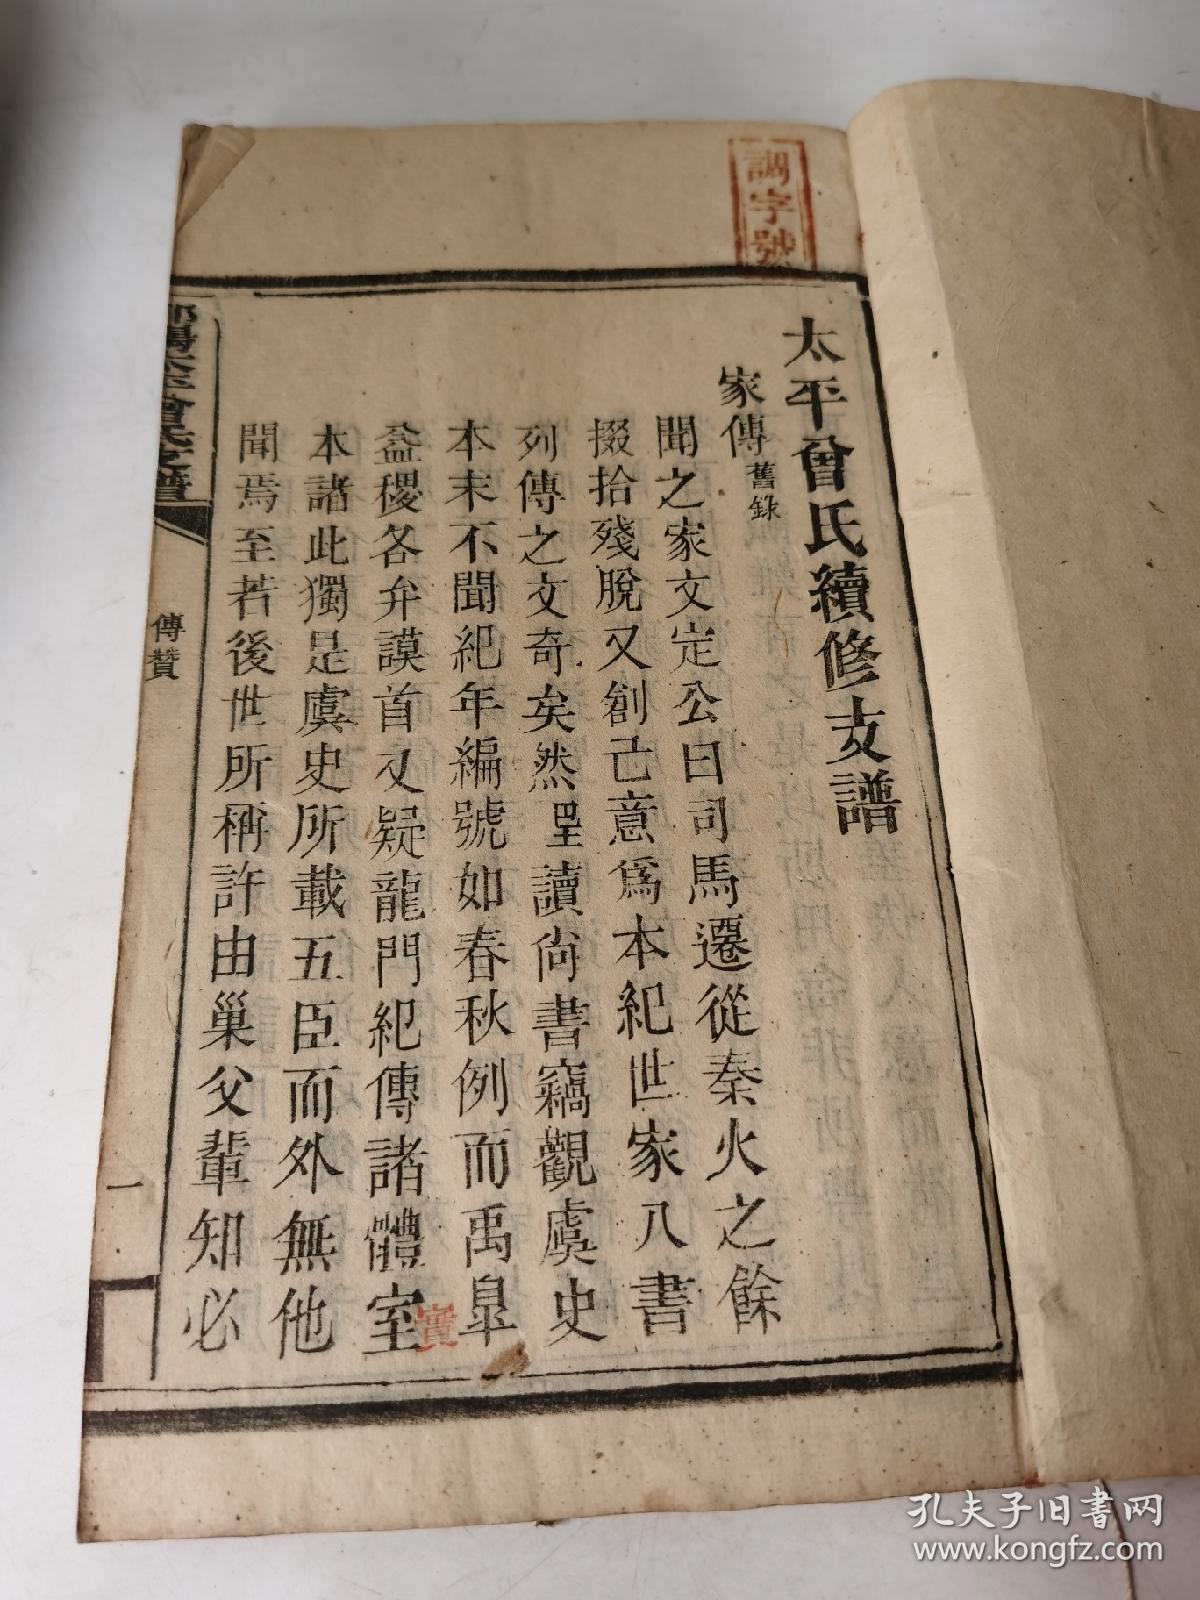 調字號
太平曾氏續修支譜
家傳舊錄
聞之家文定公曰司馬遷從秦火之餘
掇拾殘脫又創己意爲本紀世家八書
列傳之文奇矣然 讀尙書竊觀虞史
本末不聞紀年編號如春秋例而禹臯
益稷各弁謨首又疑龍門紀傳諸體室
實
本諸此獨是虞史所載五臣而外無他
聞焉至若後世所稱許由巢父輩知必
邵陽太平曾氏支譜
傳贊
一
孔夫子旧书网
www.kongfz.com